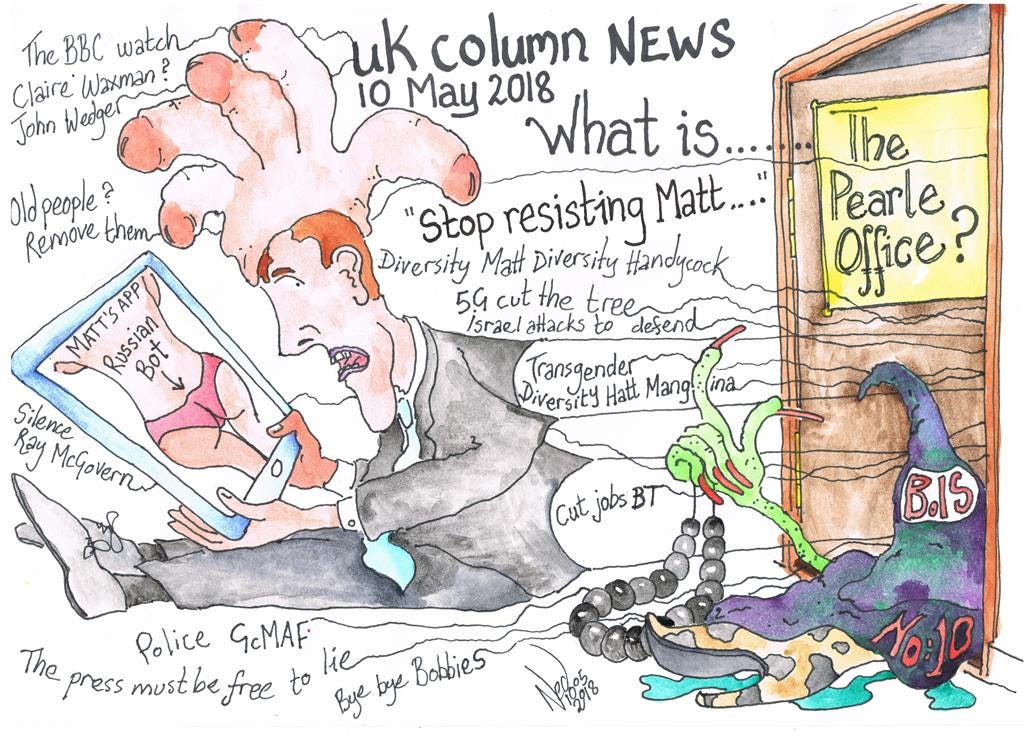 The BBC watch
Claire Waxman?
John Wedger
UK COLUMN NEWS
10 May 2018
What is.......
The
Pearle
Office?
Old people?
Remove them
"Stop resisting Matt...."
Diversity Matt Diversity Handycock
5G cut the tree
Israel attacks to defend
MATT'S APP
Russian
Bot
Transgender
Diversity Hatt Mangina
Silence
Ray McGovern
Cut jobs BT
B.IS
No:10
Police GcMAF
The press must be free to lie
Bye bye Bobbies
2018